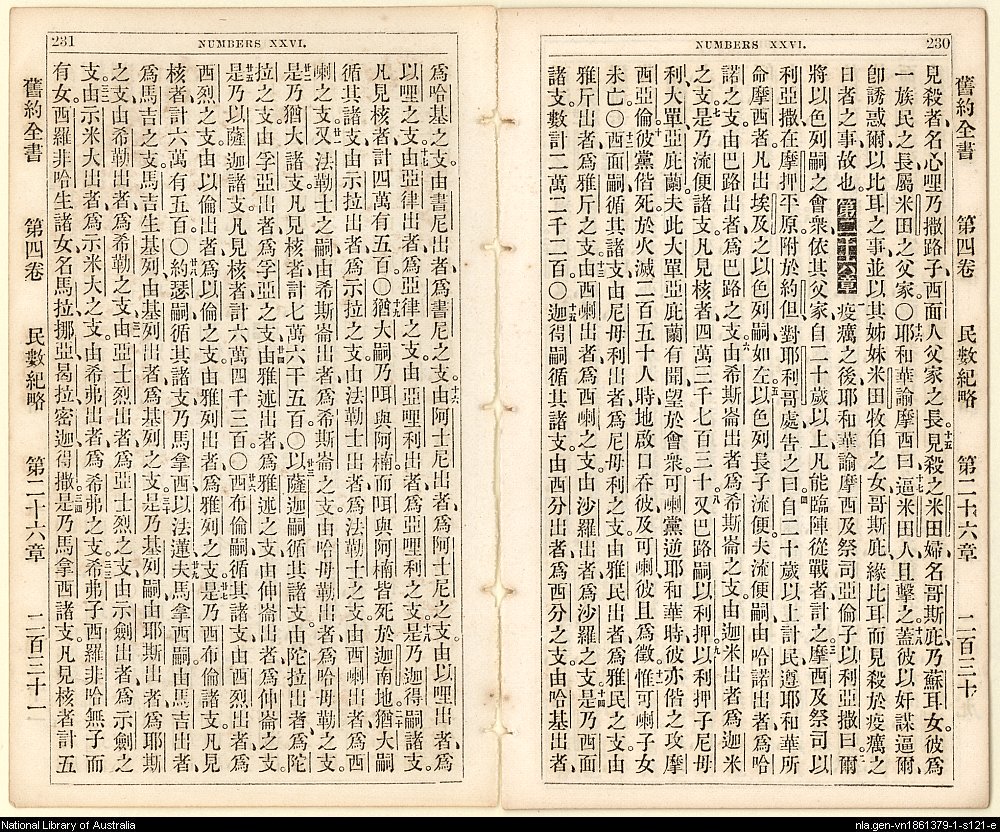 NUMBERS XXVI.
230
舊約全書 第四卷 民數紀略 第二十六章 二百三十
見殺者、名心哩、乃撒路子、西面人父家之長。見殺之米田婦、名哥斯庇、乃蘇耳女。彼爲
一族民之長、屬米田之父家。〇耶和華諭摩西曰、逼米田人、且擊之。蓋彼以奸謀逼爾、
卽誘惑爾、以比耳之事、並以其姊妹米田牧伯之女哥斯庇、緣比耳而見殺於疫癘之
日者之事故也。第二十六章 疫癘之後、耶和華諭摩西及祭司亞倫子以利亞撒曰、爾
將以色列嗣之會衆、依其父家、自二十歲以上、凡能臨陣從戰者計之。摩西及祭司以
利亞撒在摩押平原、附於約但、對耶利哥處、告之曰、自二十歲以上計民、遵耶和華所
命摩西者。凡出埃及之以色列嗣如左。以色列長子流便。夫流便嗣、由哈諾出者、爲哈
諾之支、由巴路出者、爲巴路之支、由希斯崙出者、爲希斯崙之支、由迦米出者、爲迦米
之支。是乃流便諸支。凡見核者、四萬三千七百三十。又巴路嗣以利押、以利押子尼母
利、大單、亞庇蘭。夫此大單、亞庇蘭、有聞望於會衆。可喇黨逆耶和華時、彼亦偕之攻摩
西、亞倫。彼黨偕死、於火滅二百五十人時、地啟口吞彼及可喇。彼且爲徵。惟可喇子女
未亡。〇西面嗣、循其諸支、由尼母利出者、爲尼母利之支、由雅民出者、爲雅民之支、由
雅斤出者、爲雅斤之支、由西喇出者、爲西喇之支、由沙羅出者、爲沙羅之支。是乃西面
諸支、數計二萬二千二百。〇迦得嗣、循其諸支、由西分出者、爲西分之支、由哈基出者、
231
NUMBERS XXVI.
爲哈基之支、由書尼出者、爲書尼之支、由阿士尼出者、爲阿士尼之支、由以哩出者、爲
以哩之支、由亞律出者、爲亞律之支、由亞哩利出者、爲亞哩利之支。是乃迦得嗣諸支。
凡見核者、計四萬有五百。〇猶大嗣乃咡與阿楠。而咡與阿楠皆死於迦南地。猶大嗣
循其諸支、由示拉出者、爲示拉之支、由法勒士出者、爲法勒士之支、由西喇出者、爲西
喇之支。又法勒士之嗣、由希斯崙出者、爲希斯崙之支、由哈毋勒出者、爲哈毋勒之支。
是乃猶大諸支。凡見核者、計七萬六千五百。〇以薩迦嗣、循其諸支、由陀拉出者、爲陀
拉之支、由孚亞出者、爲孚亞之支、由雅述出者、爲雅述之支、由伸崙出者、爲伸崙之支。
是乃以薩迦諸支。凡見核者、計六萬四千三百。〇西布倫嗣、循其諸支、由西烈出者、爲
西烈之支、由以倫出者、爲以倫之支、由雅列出者、爲雅列之支。是乃西布倫諸支。凡見
核者、計六萬有五百。〇約瑟嗣、循其諸支、乃馬拿西、以法蓮。夫馬拿西嗣、由馬吉出者、
爲馬吉之支。馬吉生基列。由基列出者、爲基列之支。是乃基列嗣、由耶斯出者、爲耶斯
之支、由希勒出者、爲希勒之支、由亞士烈出者、爲亞士烈之支、由示劍出者、爲示劍之
支、由示米大出者、爲示米大之支、由希弗出者、爲希弗之支。希弗子西羅非哈無子而
有女。西羅非哈生諸女、名馬拉、挪亞、曷拉、密迦、得撒。是乃馬拿西諸支。凡見核者、計五
舊約全書 第四卷 民數紀略 第二十六章 二百三十一
National Library of Australia
nla.gen-vn1861379-1-s121-e